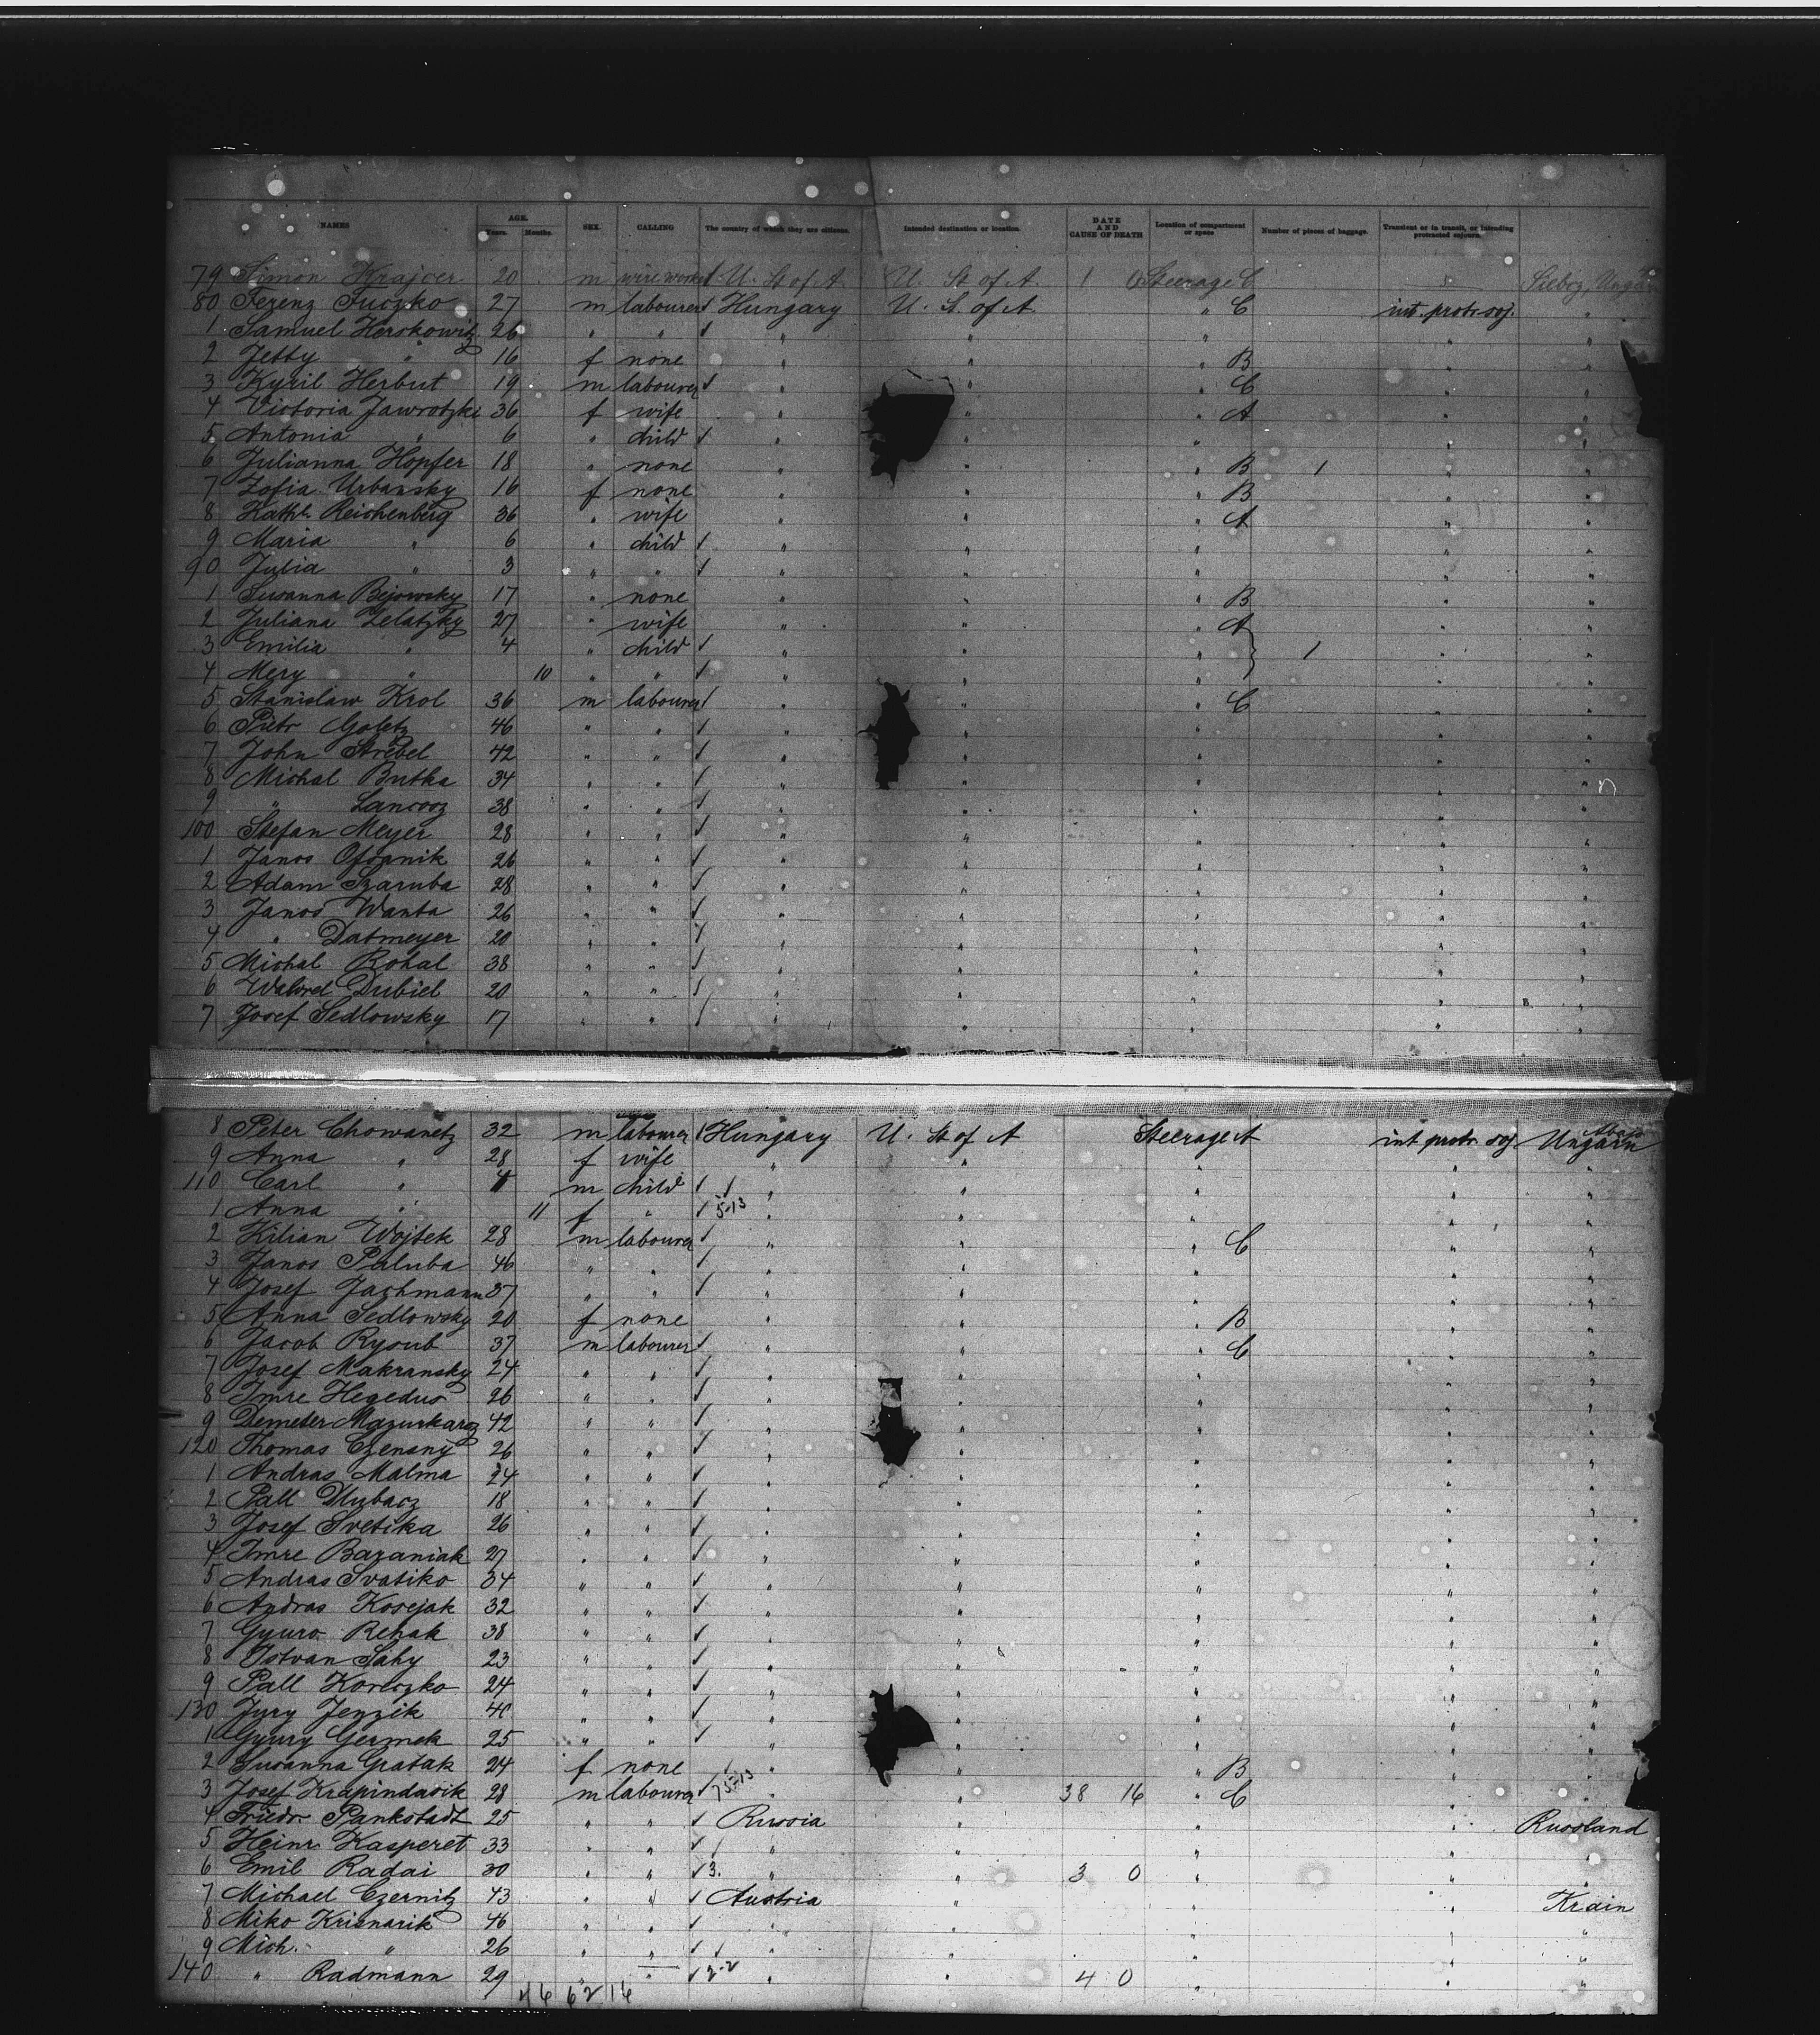 NAMES AGE. Years. Months. SEX. CALLING The country of which they are citizens. Intended destination or location. DATE AND CAUSE OF DEATH Location of compartment or space Number of pieces of baggage. Transient or in transit, or intending protracted sojourn.
79 Simon Krajcer 20 m U. St of A. U. St of A. 1 Steerage C "
80 Ferenz Fuczko 27 m labourer Hungary U. St. of A. " C int. protr. soj. "
1 Samuel Herskowitz 26 " " " " " " "
2 Jetty " 16 f none " " " B " "
3 Kyril Herbut 19 m labourer " " " C " "
4 Victoria Jawrotzki 36 f wife " " " A " "
5 Antonia " 6 " child " " " " "
6 Julianna Hopfer 18 " none " " " B 1 " "
7 Zofia Urbansky 16 f none " " " B " "
8 Reichenberg 36 " wife " " " A " "
9 Maria " 6 " child " " " " "
90 Julia " 3 " " " " " " "
1 Susanna Bejowsky 17 " none " " " B " "
2 Juliana Zelatzky 27 " wife " " " A " "
3 Emilia " 4 " child " " " 1 " "
4 Mery " 10 " " " " " " "
5 Stanislaw Krol 36 m labourer " " " C " "
6 Pietr Goletz 46 " " " " " " "
7 John Strebel 42 " " " " " " "
8 Michal Butka 34 " " " " " " "
9 " Lancocz 38 " " " " " " "
100 Stefan Meyer 28 " " " " " " "
1 Janos 26 " " " " " " "
2 Adam Szaruba 28 " " " " " " "
3 Janos Wanta 26 " " " " " " "
4 " Datmeyer 20 " " " " " " "
5 Michal Rohal 38 " " " " " " "
6 Dubiel 20 " " " " " " "
7 Josef Sedlowsky 17 " " " " " " "
8 Peter Chowanetz 32 m labourer Hungary U. St of A Steerage A int protr. soj. Ungarn
9 Anna " 28 f wife " " " " "
110 Carl " 4 m child " " " " "
1 Anna " 11 f " 5-13 " " " " "
2 Kilian Wojtek 28 m labourer " " " C " "
3 Janos Paluba 46 " " " " " " "
4 Josef Jachmann 37 " " " " " " "
5 Anna Sedlowsky 20 f none " " " B " "
6 Jacob Rysub 37 m labourer " " " C " "
7 Josef Makransky 24 " " " " " " "
8 Imre Hegedus 26 " " " " " " "
9 Demeter Mazurkarcz 42 " " " " " " "
120 Thomas Czenany 26 " " " " " " "
1 Andras Malma 24 " " " " " " "
2 Pall Hlubacz 18 " " " " " " "
3 Josef Svetika 26 " " " " " " "
4 Imre Bazaniak 27 " " " " " " "
5 Andras Svatiko 34 " " " " " " "
6 Andras Kosejak 32 " " " " " " "
7 Gyuro Rehak 38 " " " " " " "
8 Istvan Sahy 23 " " " " " " "
9 Pall Koreczko 24 " " " " " " "
130 Jury Jenzik 40 " " " " " " "
1 Gyury Germek 25 " " " " " " "
2 Susanna Gratak 24 f none " " " B " "
3 Josef Krapindasik 28 m labourer " " 38 16 " C " "
4 Friedr. Pankstadt 25 " " Russia " " " Russland
5 Heinr. Kasperet 33 " " " " " " "
6 Emil Radai 30 " " 3. " " 3 0 " " "
7 Michael Czernitz 43 " " Austria " " " Krain
8 Miko Krisnarik 46 " " " " " " "
9 Mich. " 26 " " " " " " "
140 " Radmann 29 " " 2-2 " " 4 0 " " "
46 62 16